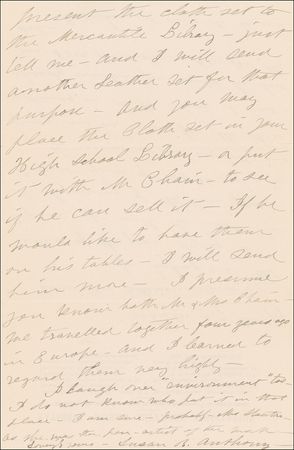 present the cloth set to
the Mercantile Library - just
tell me - and I will send
another Leather set for that
purpose - and you may
place the Cloth set in your
High School Library - or put
it with Mr Chain - to see
if he can sell it - If he
would like to have them
on his tables - I will send
him more - I presume
you know both Mr & Mrs Chain -
we travelled together four years ago
in Europe - and I learned to
regard them very highly -
I laugh over "environment" too -
I do not know who put it in that
place - I am sure - probably Mrs
as she was the pen-artist of the work
Susan B. Anthony -